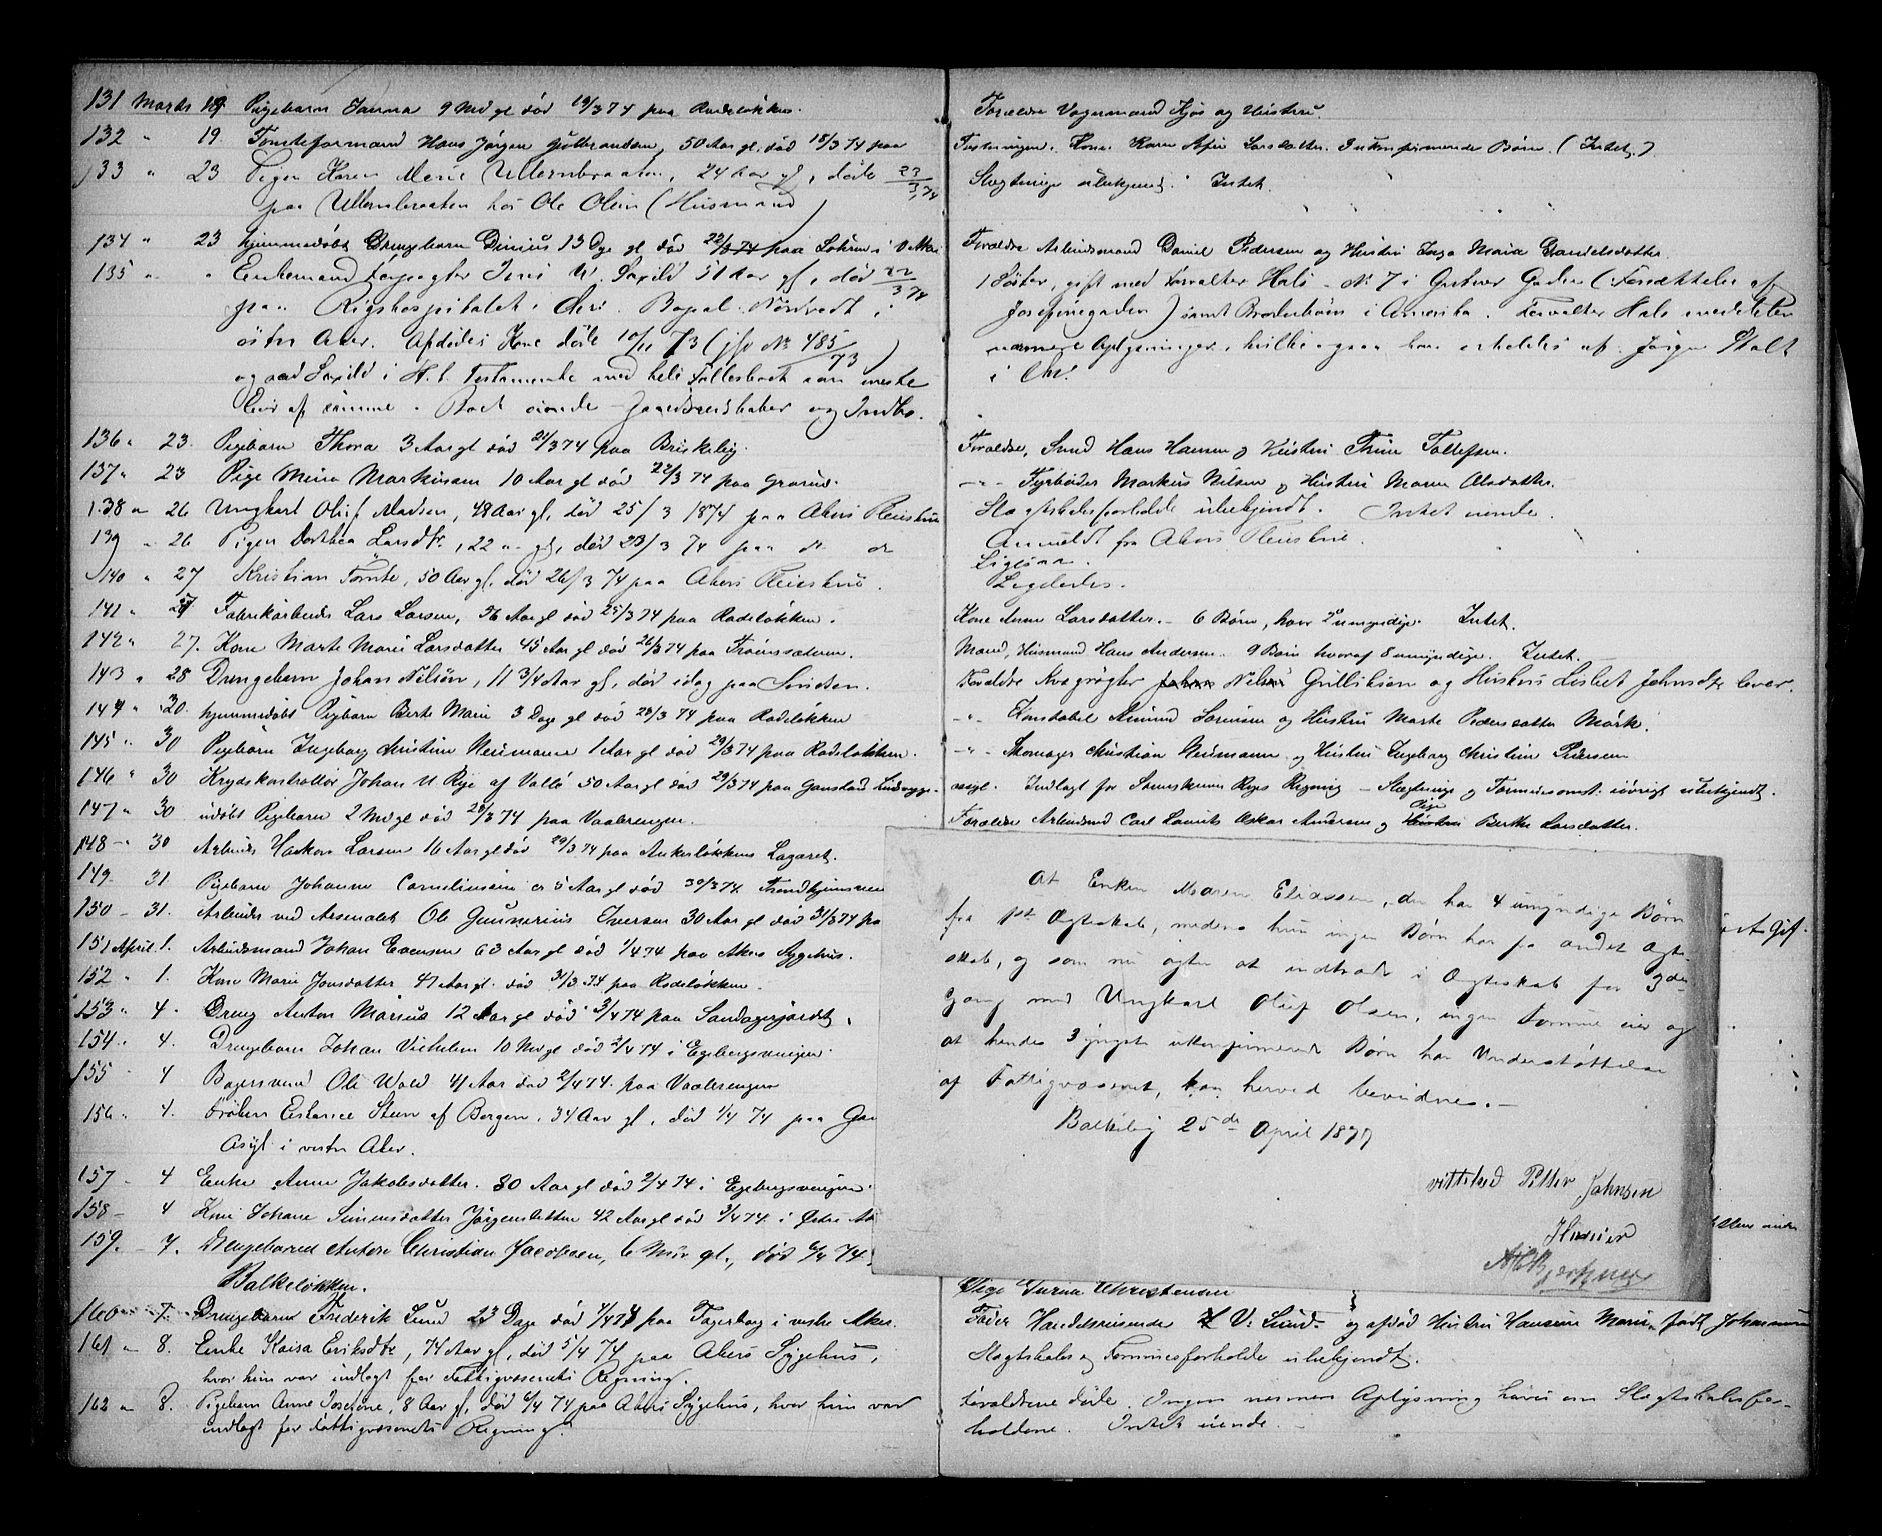 131 Marts 19 Pigebarn Janna 9 Md gl død 19/3 74 paa Rodeløkken. Forældre Vognmand Kjøs og Hustru.
132 " 19. Tomteformand Hans Jørgen Gulbrandsen, 50 Aar gl. død 18/3 74 paa Fæstningen. Kone Karen Larsdatter. Ukonfirmerede Børn. (Intet.)
133 " 23 Pigen Karen Marie Ullernbraaten, 24 Aar gl, døde 23/3 74 Slægtninge ubekjendt. Intet.
paa Ullernbraaten hos Ole Olsen (Husmand)
134 " 23 hjemmedøbt Drengebarn Dinius 13 Dge gl død 22/3 74 paa i V Aker Forældre Arbeidsmand Daniel Pedersen og Hustru Inga Maria Danielsdatter.
135 " " Enkemand Forpagter Jens W. Saxild 51 Aar gl, død 22/3 74 1 Søster, gift med Forvalter Hals No 7 i Gaden (Forsættelse af
paa Rigshospitalet i Chra. Bopæl i Josefinegaden) samt Brorbørn i Amerika. Forvalter Hals meddeler
østre Aker. Afdødes Kone døde 10/11 73 (jfr No 485/73) nærmere Oplysninger, hvilke ogsaa kan erholdes af Jørgen Stalt
og sad Saxild i H. t. Testamente med hele Fællesboet som eneste i Chra.
af samme. Boet eiende Gaardsredskaber og Indbo.
136 " 23. Pigebarn Thora 3 Aar gl død 21/3 74 paa Briskeby. Forældre, Smed Hans Hansen og Hustru Trine Tollefsen.
137 " 23 Pige Mina Markusen 10 Aar gl død 22/3 74 paa Grorud. -"- Fyrbøder Markus Nilsen og Hustru Maren Olsdatter.
138 " 26 Ungkarl Oluf Madsen, 48 Aar gl, død 25/3 1874 paa Akers Pleiestue Slægtskabsforholde ubekjendt. Intet eiende.
139 " 26 Pigen Dorthea Larsdtr, 22 " gl, død 23/3 74 paa do do Anmeldt fra Akers Pleiestue.
Ligesaa.
140 " 27 Kristian Tomte, 50 Aar gl. død 26/3 74 paa Akers Pleiestue. Ligeledes.
141 " 27 Fabrikarbeider Lars Larsen, 36 Aar gl død 25/3 74 paa Rodeløkken. Kone Anne Larsdatter. 6 Børn, hvor 2 umyndige. Intet.
142 " 27. Kone Marte Marie Larsdatter 45 Aar gl død 26/3 74 paa Frønssæteren. Mand, Husmand Hans Andersen. 9 Børn hvoraf 8 umyndige. Intet.
143 " 28 Drengebarn Johan Nilsen, 11 3/4 Aar gl, død idag paa Forældre Kvægrøgter Johan Nilsen Gulliksen og Hustru Lisbet Johnsdtr lever.
144 " 30. hjemmedøbt Pigebarn Berte Marie 3 Dage gl død 28/3 74 paa Rodeløkken -"- Konstabel Amund Sørensen og Hustru Marte Pedersdatter Mørk.
145 " 30 Pigebarn Ingeborg Kristine Neumann 1 Aar gl død 29/3 74 paa Rodeløkken. -"- Skomager Christian Neumann og Hustru Ingeborg Christine Pedersen
146 " 30 Krydskontrollør Johan U Rye af Vallø 50 Aar gl død 29/3 74 paa Gaustad Sindssyge- asyl. Indlagt for Regning – Slægtninge og Formuesomst. iøvrigt ubekjendt.
147 " 30 udøbt Pigebarn 2 Md gl død 28/3 74 paa Vaalerengen. Forældre Arbeidsmd Carl Laurits Oskar Andersen og Hustru Pige Berthe Larsdatter.
148 " 30 Arbeider Haakon Larsen 16 Aar gl død 29/3 74 paa Ankerløkkens Lazaret.
149 31. Pigebarn Johanne Corneliussen er 5 Aar gl død 30/3 74 Trondhjemsveien
150 – 31. Arbeider ved Arsenalet Ole Gunnerius Iversen 30 Aar gl død 31/3 74 pa
151 April 1. Arbeidsmand Johan Evensen 63 Aar gl død 1/4 74 paa Akers Sygehus.
152 " 1. Kone Marie Jonsdatter 47 Aar gl. død 31/3 74 paa Rodeløkken.
153 " 4. Dreng Anton Marius 12 Aar gl død 3/4 74 paa Sandagerjordet.
154 " 4. Drengebarn Johan Vilhelm 10 Md gl død 2/4 74 i Egebergsveien
155 " 4 Bagersvend Ole Wold 41 Aar død 2/4 74. paa Vaalerengen
156 " 4. Frøken Stein af Bergen, 34 Aar gl, død 1/4 74 paa Gau
Asyl i vestre Aker.
157 – 4 Enke Anne Jakobsdatter. 80 Aar gl død 2/4 74 i Egebergsveien.
158 – 4 Kone Johane Simensdatter Jørgensletten 42 Aar gl død 3/4 74 i Østre A
159. – 7. Drengebarnet Andor Christian Jacobsen, 6 Mdr gl., død 6/4 74.
Balkeløkken.
Pige Gurina Christensen
160 " 7. Drengebarn Frederik Lund 23 Dage død 4/4 74 paa Fagerborg i vestre Aker. Fader Handelsreisende H V. Lund og afdød Hustru Hansine Marie, født Johannsen
161 " 8. Enke Kaisa Eriksdtr, 74 Aar gl, død 5/4 74 paa Akers Sygehus, Slægtskabs og Formuesforholde ubekjendt.
hvor hun var indlagt for Fattigvæsenets Regning.
162 " 8. Pigebarn Anne Josefine, 8 Aar gl, død 6/4 74 paa Akers Sygehus, hvor hun var Forældrene døde. Ingen nærmere Oplysning haves om Slægtskabsfor-
indlagt for Fattigvæsenets Regning. holdene. Intet eiende.
At Enken Maren Eliassen, der har 4 umyndige Børn
fra 1ste Ægteskab, medens hun ingen Børn har fra andet Ægte-
skab, og som nu agter at indtræde i Ægteskab for 3die
Gang med Ungkarl Oluf Olsen, ingen Formue eier og
at hendes 3 yngste ukonfirmerede Børn har Understøttelse
af Fattigvæsenet, kan herved bevidnes. –
Balkeby 25de April 1877
Petter Johnsen